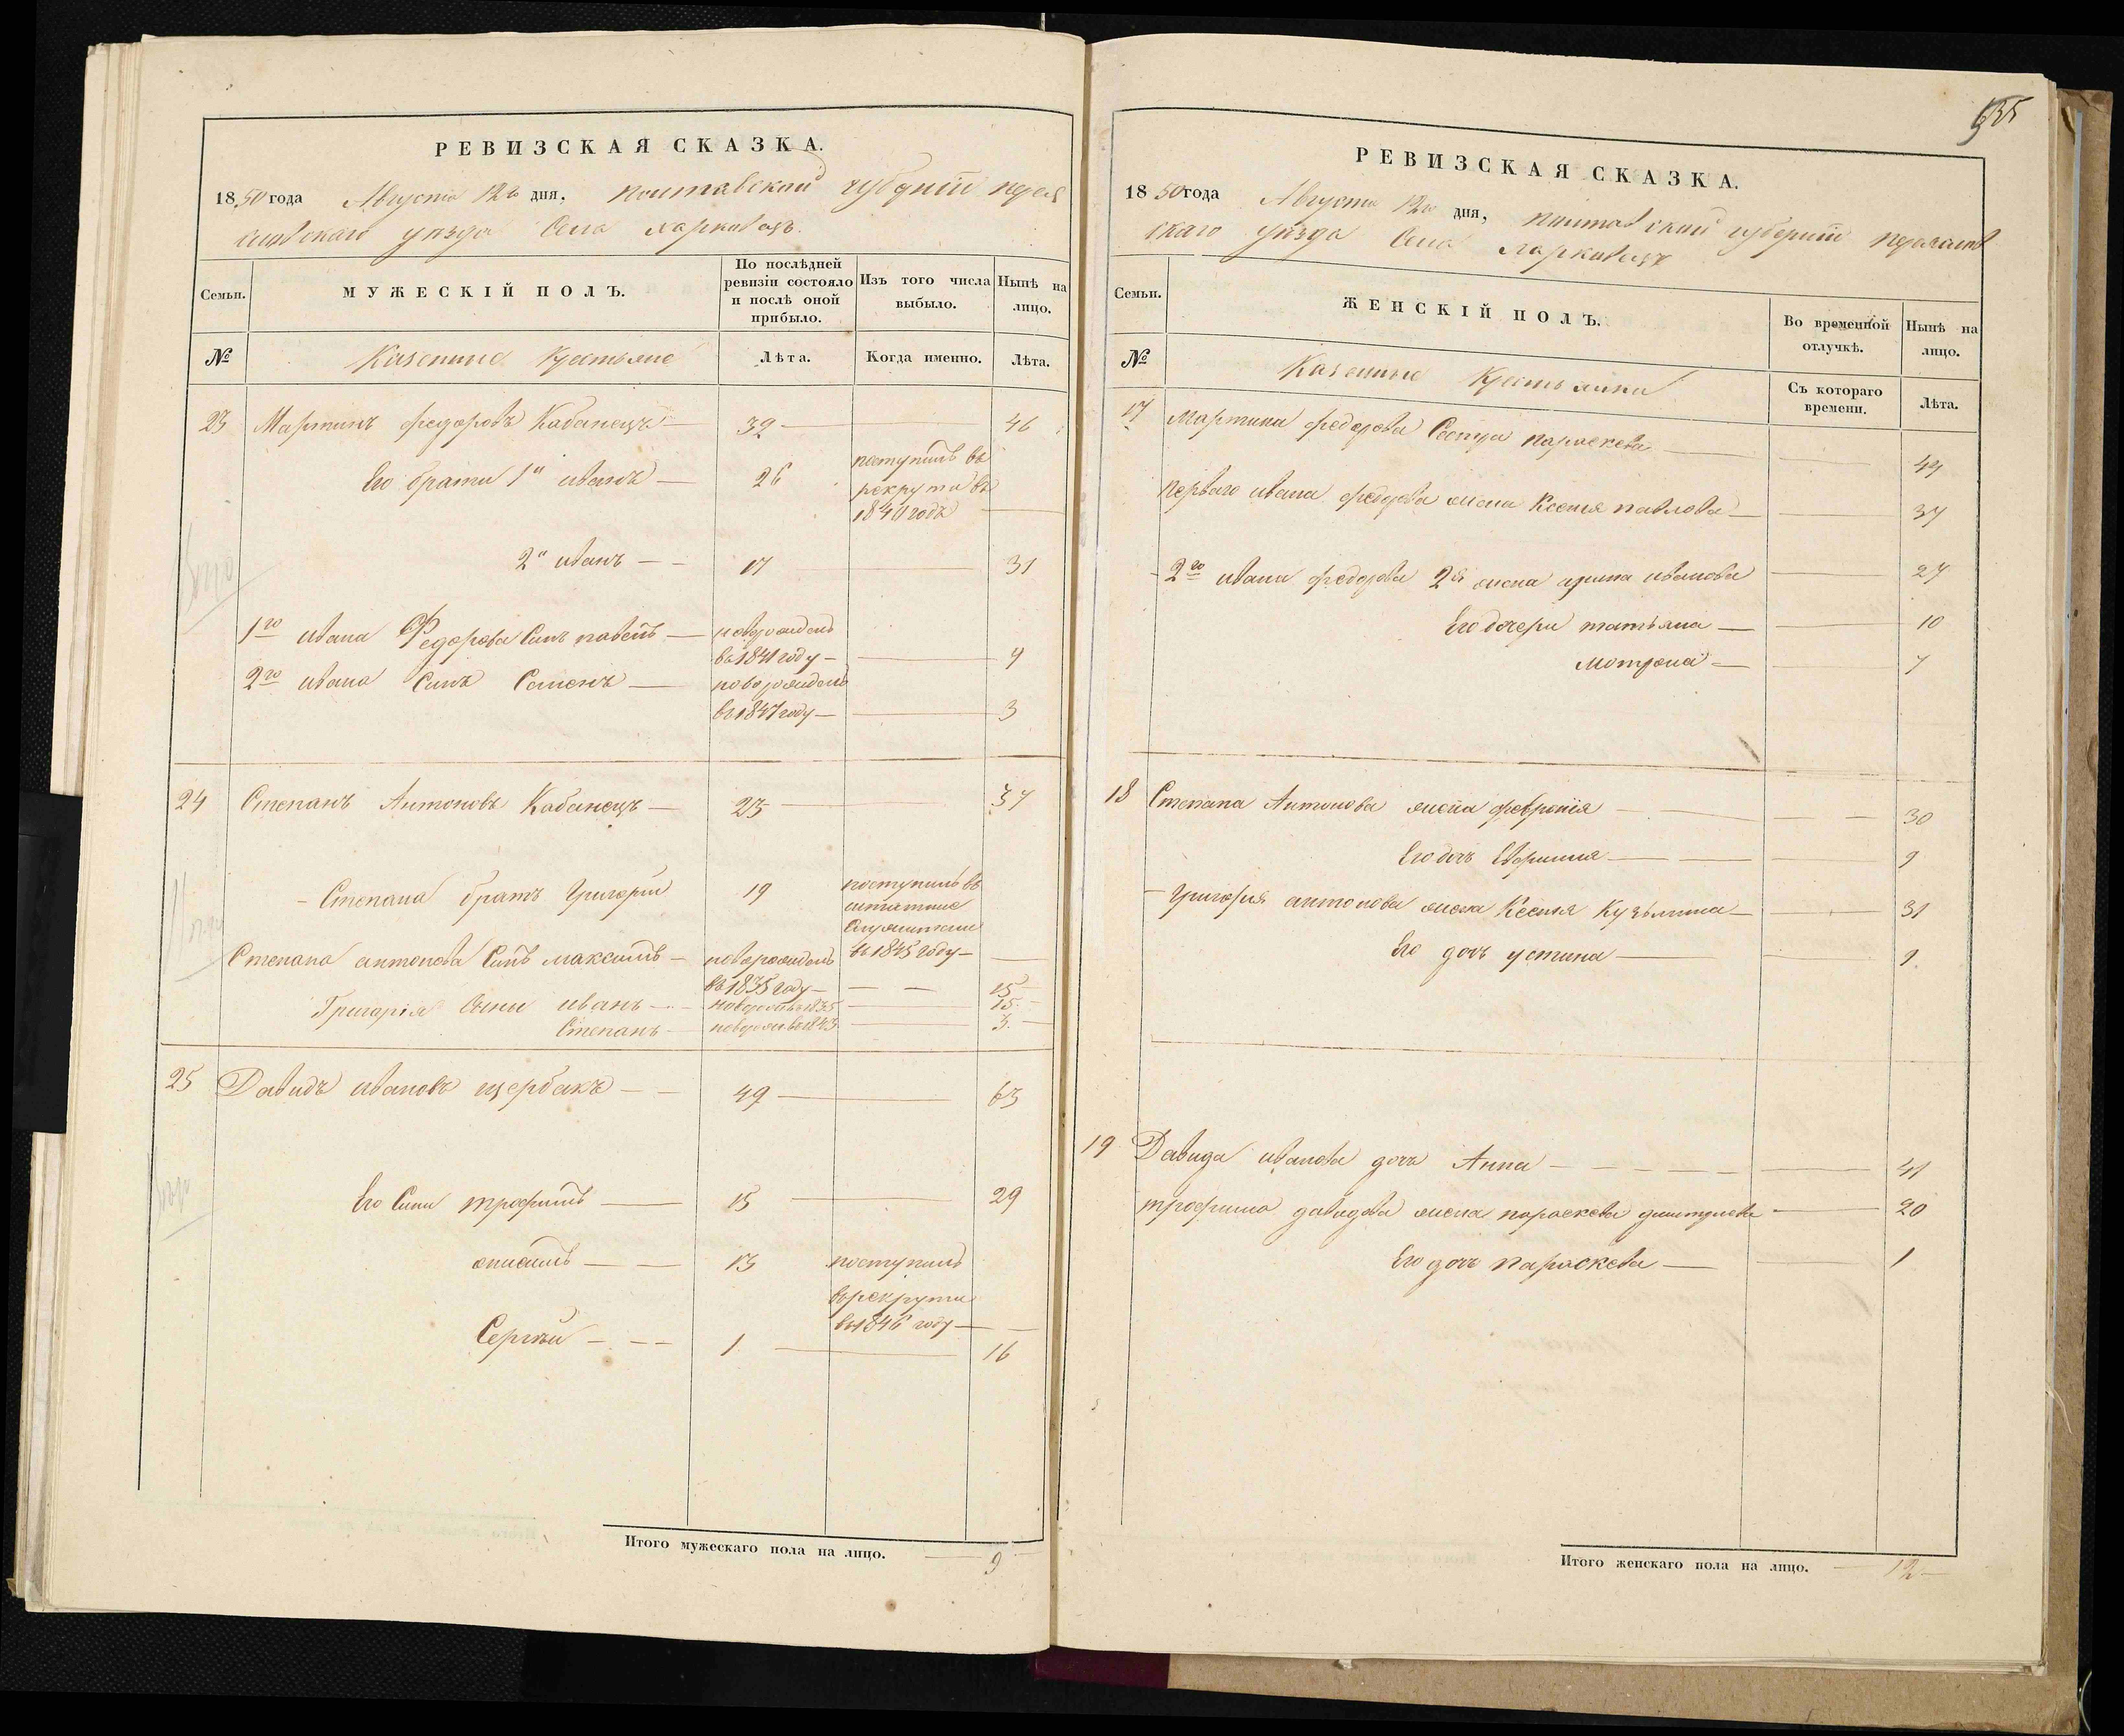 РЕВИЗСКАЯ СКАЗКА.
1850 года Августа 12го дня, полтавской губернии перея
славскаго уезда Села Харьковецъ.
Семьи. МУЖЕСКІЙ ПОЛЪ. По послѣдней ревизіи состояло и послѣ оной прибыло. Изъ того числа выбыло. Нынѣ на лицо.
№ Казенние Крестьяне Лѣта. Когда именно. Лѣта.
23 Мартинъ федоровъ Кабанецъ — 32 — 46
Его брати 1й иванъ — 26 поступилъ въ
рекрути въ
1840 годъ —
2й иванъ — — 17 — 31
1го ивана Федорова Синъ павелъ — новорожденъ
въ 1841 году — — 9
2го ивана Синъ Семенъ — новорожденъ
въ 1847 году — — 3
24 Степанъ Антоновъ Кабанецъ — 23 — 37
— Степана братъ Григорій 19 поступилъ въ
штатние
Служители
въ 1845 году —
Степана антонова Синъ максимъ — новорожденъ
въ 1835 году — — — 15
Григорія Сыны иванъ — новорож въ 1835 — 15 —
Степанъ — новорож въ 1843 — 3. —
25 Давидъ ивановъ щербакъ — — 49 — 63
Его Сини трофимъ — 15 — 29
онисимъ — — 13 поступилъ
въ рекрути
въ 1846 году —
Сергѣй — — — 1 — 16
Итого мужескаго пола на лицо. — 9 —
РЕВИЗСКАЯ СКАЗКА.
1850 года Августа 12го дня, полтавской губерніи переяслав
скаго уезда Села Харьковецъ
Семьи. ЖЕНСКІЙ ПОЛЪ. Во временной отлучкѣ. Нынѣ на лицо.
№ Казенние Крестьянки Съ котораго времени. Лѣта.
17 Мартина федорова Сестра параскева — — 44
перваго ивана федорова жена Ксенія павлова — — 37
— 2го ивана федорова 2я жена ирина иванова — 27
Его дочери татьяна — — 10
мотрона — — 7
18 Степана Антонова жена февронія — — — — 30
Его дочь Евфимия — — — 9
— Григорія антонова жена Ксенія Кузьмина — — 31
Его дочь устина — — 9.
19 Давида иванова дочь Анна — — — — — — 41
трофима давидова жена параскева дмитриева — 20
Его дочь параскева — — 1
Итого женскаго пола на лицо. — 12 —